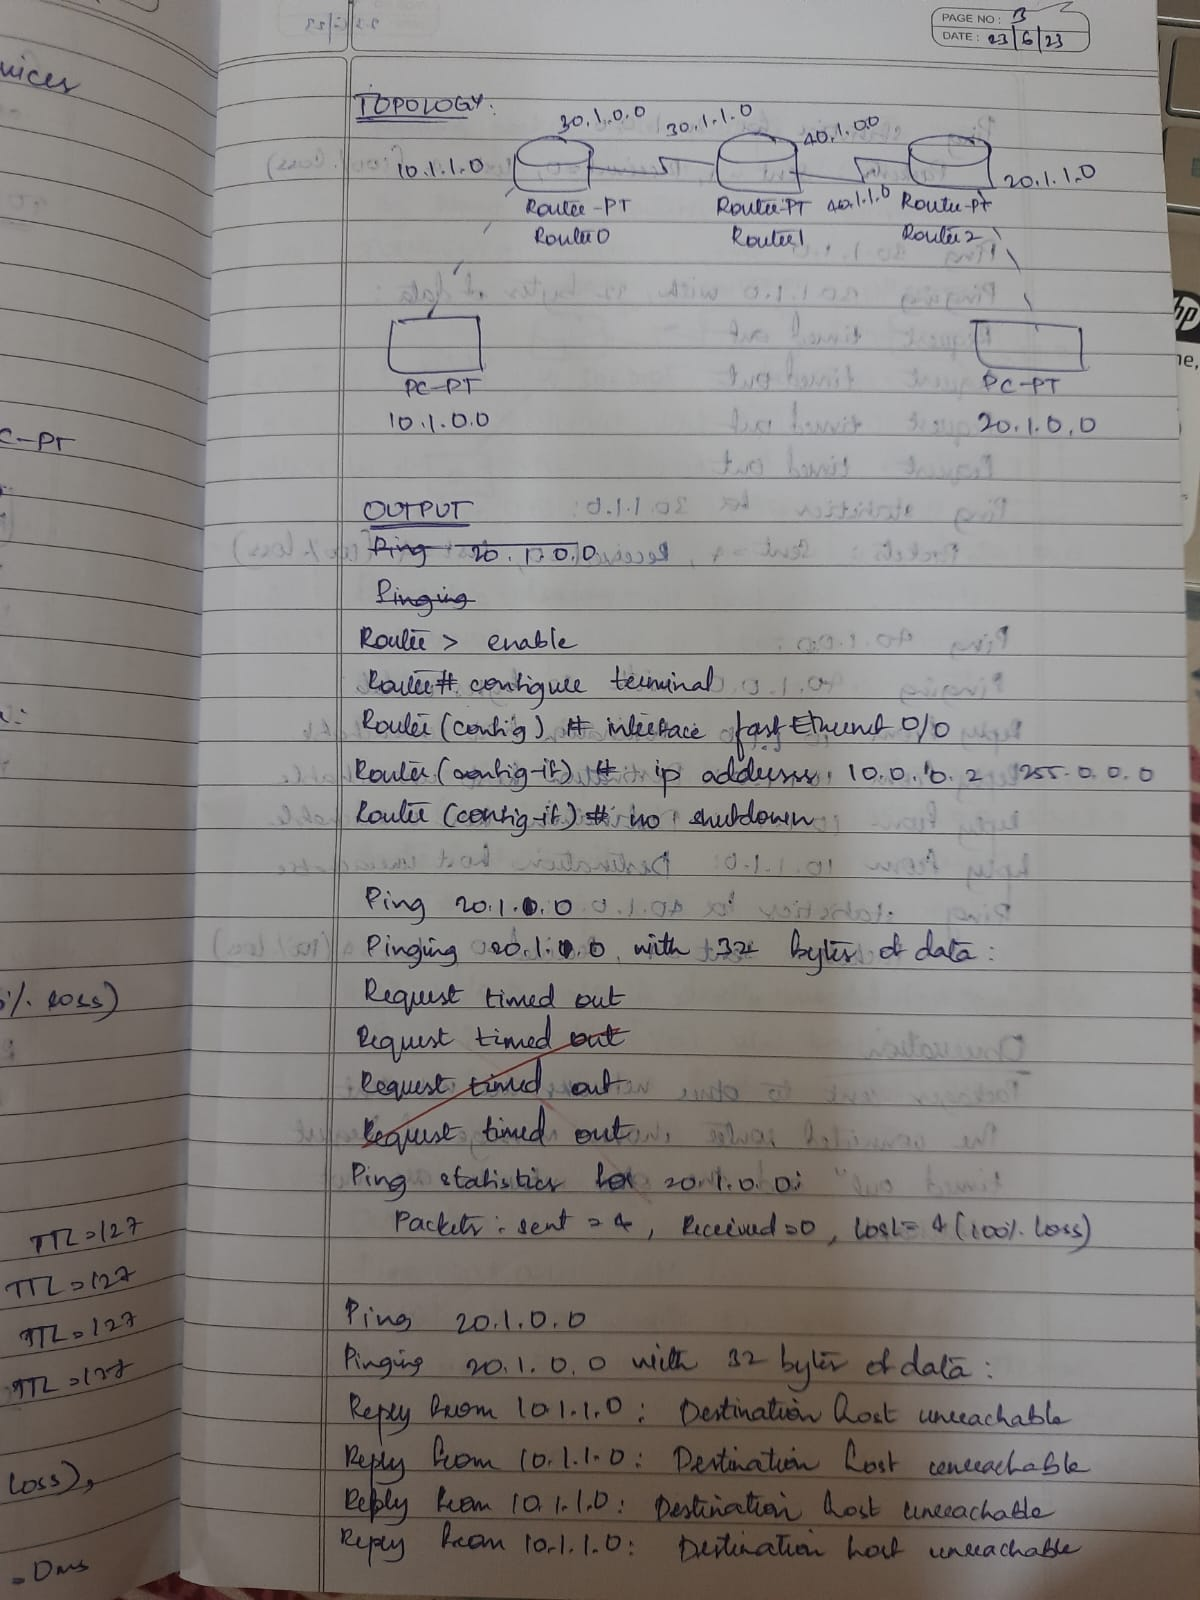 PAGE NO: 3
DATE: 23/6/23
TOPOLOGY:
30.1.0.0 30.1.1.0 40.1.0.0
10.1.1.0 20.1.1.0
Router-PT Router-PT 40.1.1.0 Router-PT
Router0 Router1 Router2
PC-PT PC-PT
10.1.0.0 20.1.0.0
OUTPUT
Ping 20.1.0.0
Pinging
Router > enable
Router# configure terminal
Router (config) # interface fastEthernet 0/0
Router (config-if) # ip address 10.0.0.2 255.0.0.0
Router (config-if) # no shutdown
Ping 20.1.0.0
Pinging 20.1.0.0 with 32 bytes of data:
Request timed out
Request timed out
Request timed out
Request timed out
Ping statistics for 20.1.0.0:
Packets: sent = 4, Received = 0, Lost = 4 (100% loss)
Ping 20.1.0.0
Pinging 20.1.0.0 with 32 bytes of data:
Reply from 10.1.1.0: Destination host unreachable
Reply from 10.1.1.0: Destination host unreachable
Reply from 10.1.1.0: Destination host unreachable
Reply from 10.1.1.0: Destination host unreachable
vices
C-PT
% loss)
TTL=127
TTL=127
TTL=127
TTL=127
Loss),
= 0ms
hp